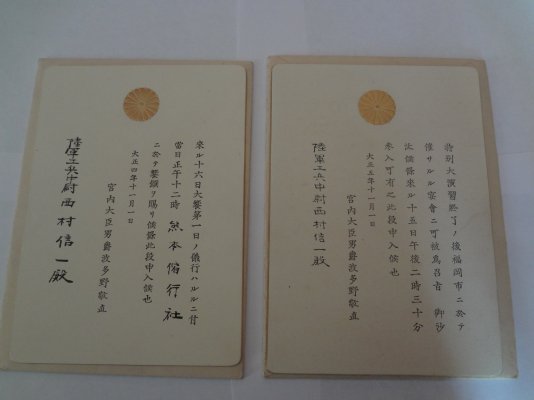 來ル十六日大饗第一日ノ儀行ハルルニ付
當日正午十二時 熊本偕行社
ニ於テ饗饌ヲ賜リ候條此段申入候也
大正四年十一月一日
宮内大臣男爵波多野敬直
陸軍工兵中尉西村信一殿
特別大演習終了ノ後福岡市ニ於テ
催サルル宴會ニ可被爲召旨 御沙
汰候條來ル十五日午後二時三十分
参入可有之此段申入候也
大正五年十一月一日
宮内大臣男爵波多野敬直
陸軍工兵中尉西村信一殿